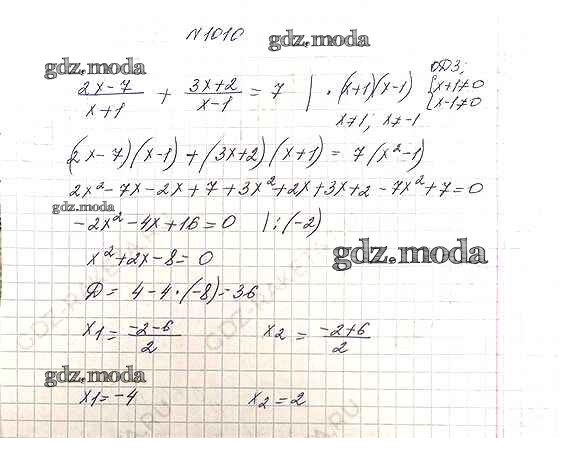 N1010
gdz.moda
gdz.moda
ОДЗ:
(2x-7)/(x+1) + (3x+2)/(x-1) = 7 | · (x+1)(x-1) { x+1≠0
x-1≠0
x≠1; x≠-1
(2x-7)(x-1)+(3x+2)(x+1)=7(x²-1)
2x²-7x-2x+7+3x²+2x+3x+2-7x²+7=0
gdz.moda
-2x²-4x+16=0 |:(-2)
gdz.moda
x²+2x-8=0
D= 4-4·(-8)=36
x1= (-2-6)/2 x2= (-2+6)/2
gdz.moda
x1=-4 x2=2
GDZ-RAKETA.RU
GDZ-RAKETA.RU